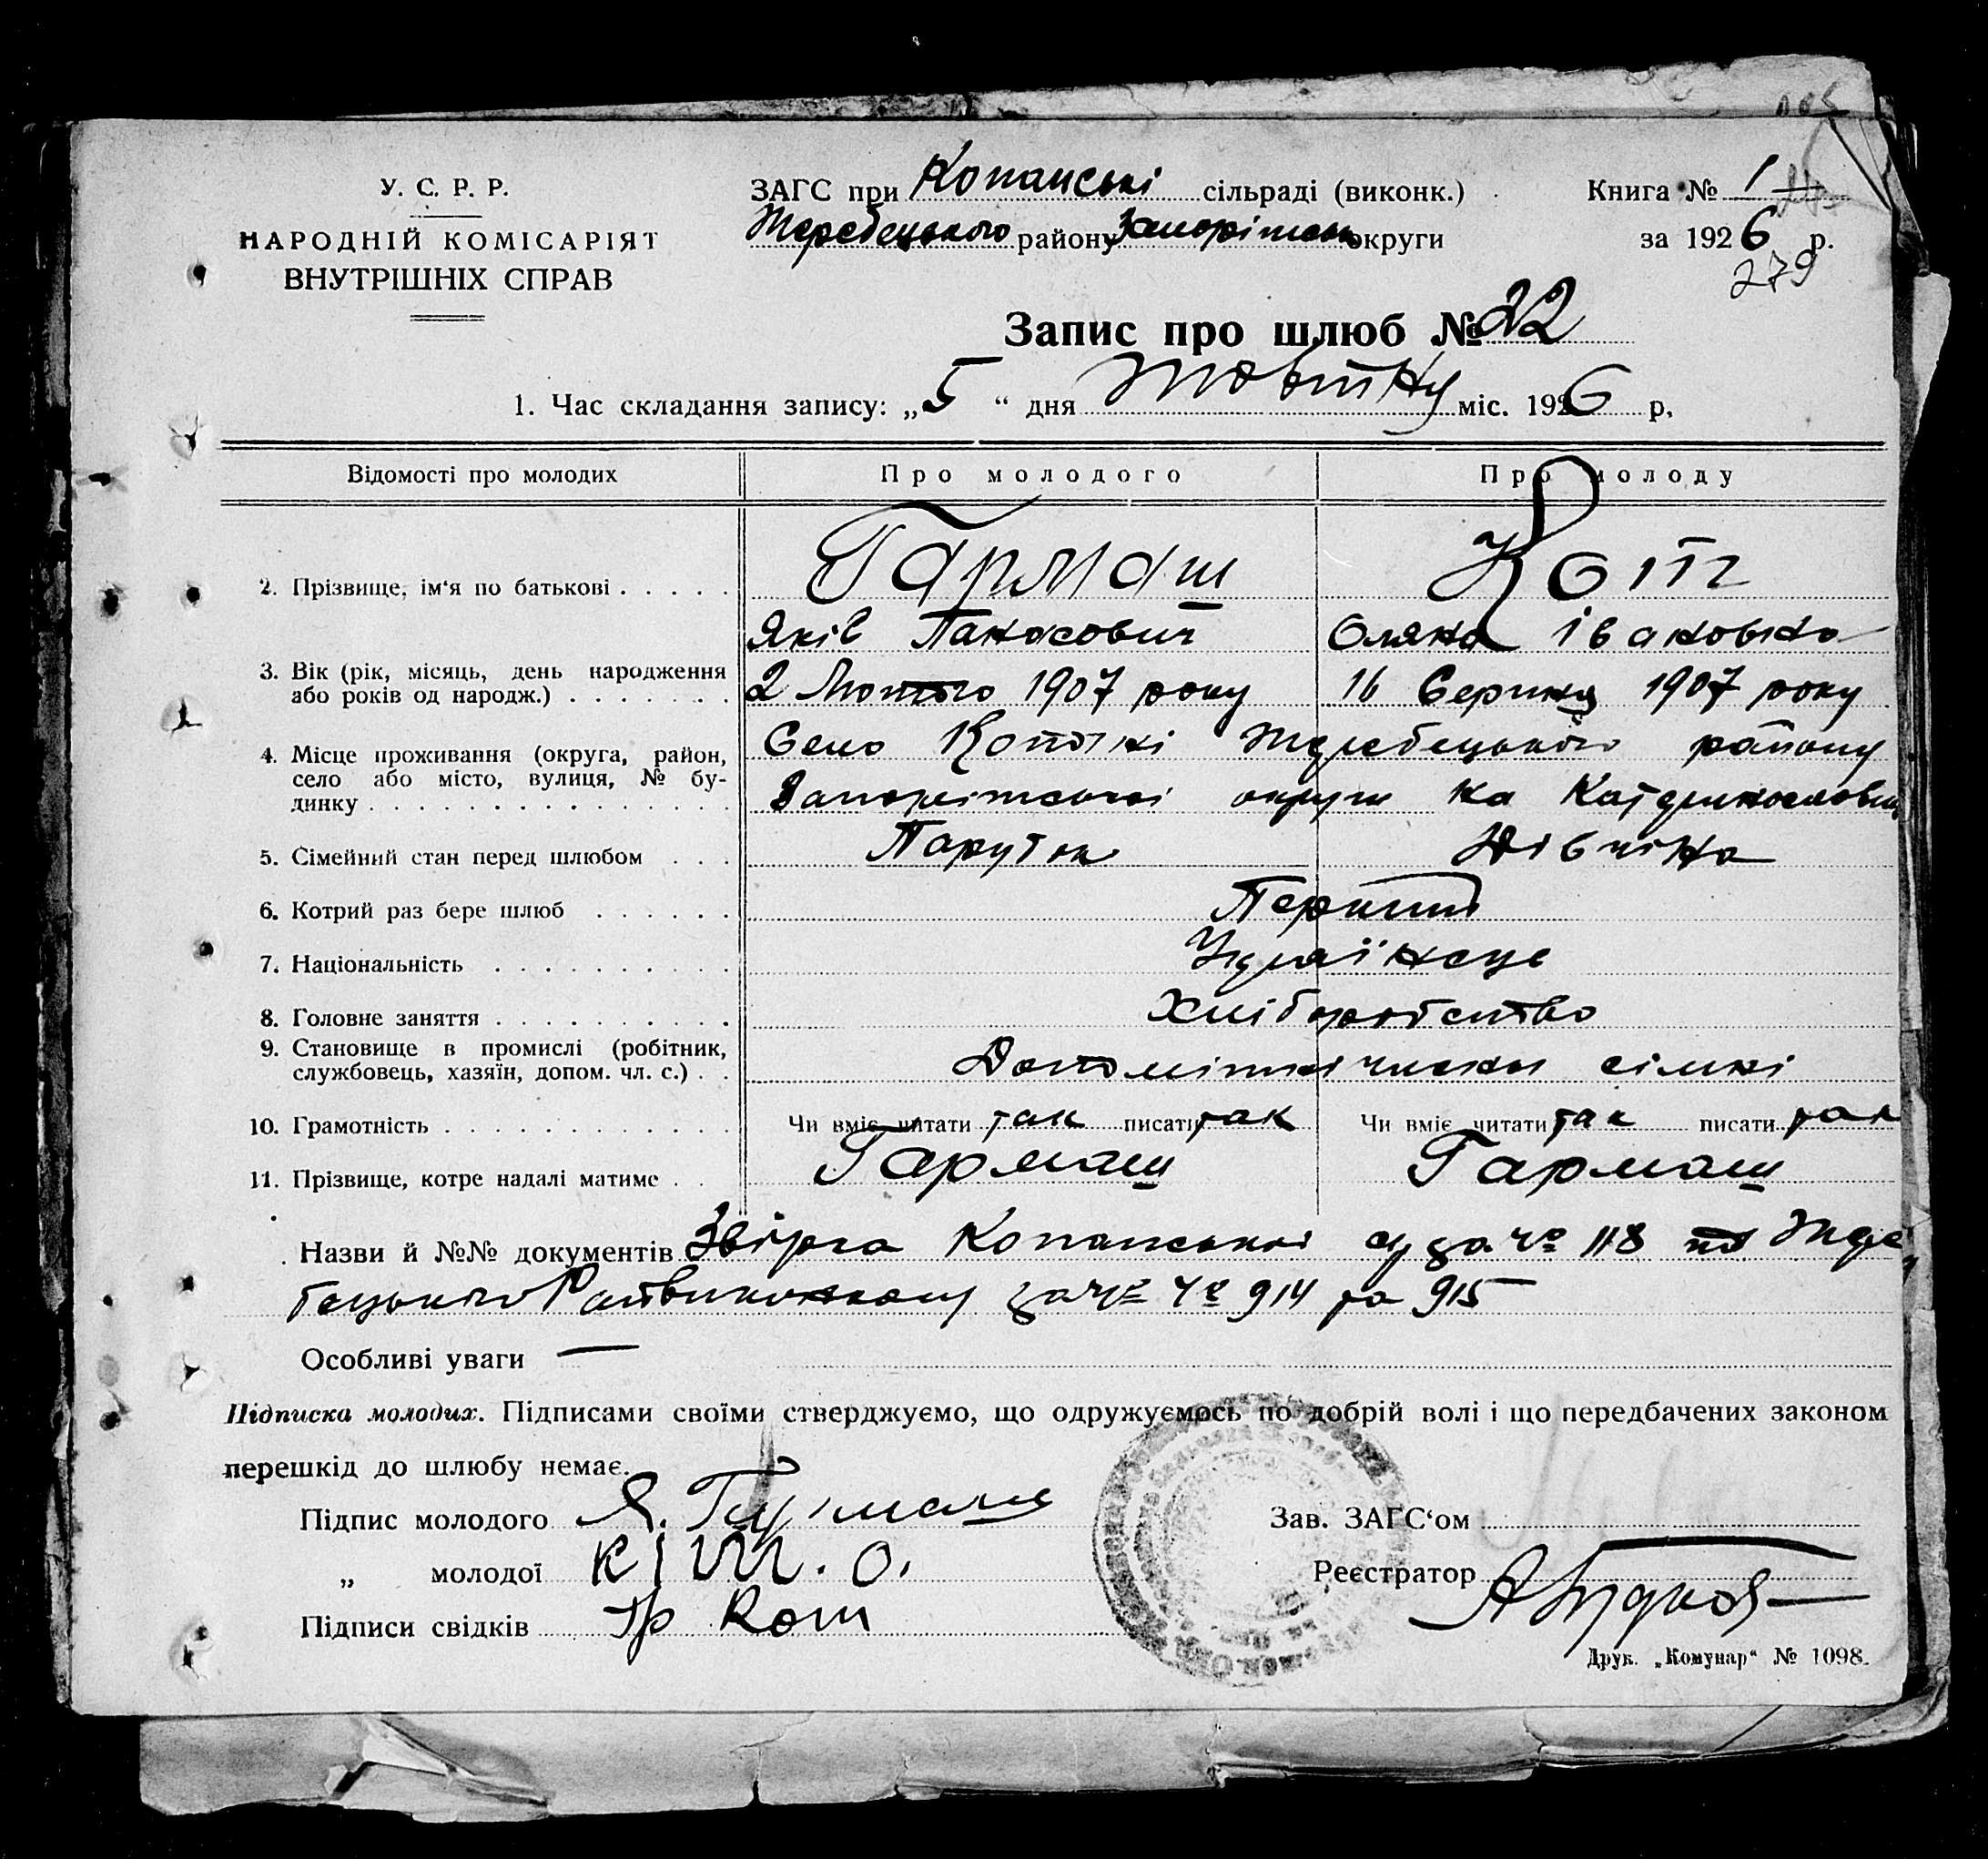 У. С. Р. Р.
НАРОДНІЙ КОМІСАРІЯТ
ВНУТРІШНІХ СПРАВ
ЗАГС при Копанські сільраді (виконк.)
Жеребецького району Запоріжськ округи
Книга № 1
за 1926 р.
279
Запис про шлюб № 22
1. Час складання запису: „5“ дня Жовтня міс. 1926 р.
Відомості про молодих Про молодого Про молоду
2. Прізвище, ім'я по батькові Гармаш Кот
Яків Панасович Оляна Івановна
3. Вік (рік, місяць, день народження
або років од народж.) 2 Лютого 1907 року 16 Серпня 1907 року
4. Місце проживання (округа, район,
село або місто, вулиця, № бу-
динку
Село Копані Жеребецького району
Запоріжської округи на Катеринославщ
5. Сімейний стан перед шлюбом Парубок Дівчіна
6. Котрий раз бере шлюб Перший
7. Національність Українсце
8. Головне заняття Хліборобство
9. Становище в промислі (робітник,
службовець, хазяїн, допом. чл. с.) члены сімні
10. Грамотність Чи вміє читати так писати так Чи вміє читати так писати так
11. Прізвище, котре надалі матиме Гармаш Гармаш
Назви й №№ документів Копанської за № 118 Жере
бецького Райвиконкому за 914 та 915
Особливі уваги —
Підписка молодих. Підписами своїми стверджуємо, що одружуємось по добрій волі і що передбачених законом
перешкід до шлюбу немає.
Підпис молодого Я. Гармаш
„ молодої Кіт. О.
Підписи свідків Гр Кот
Зав. ЗАГС'ом
Реєстратор
Друк. „Комунар“ № 1098.